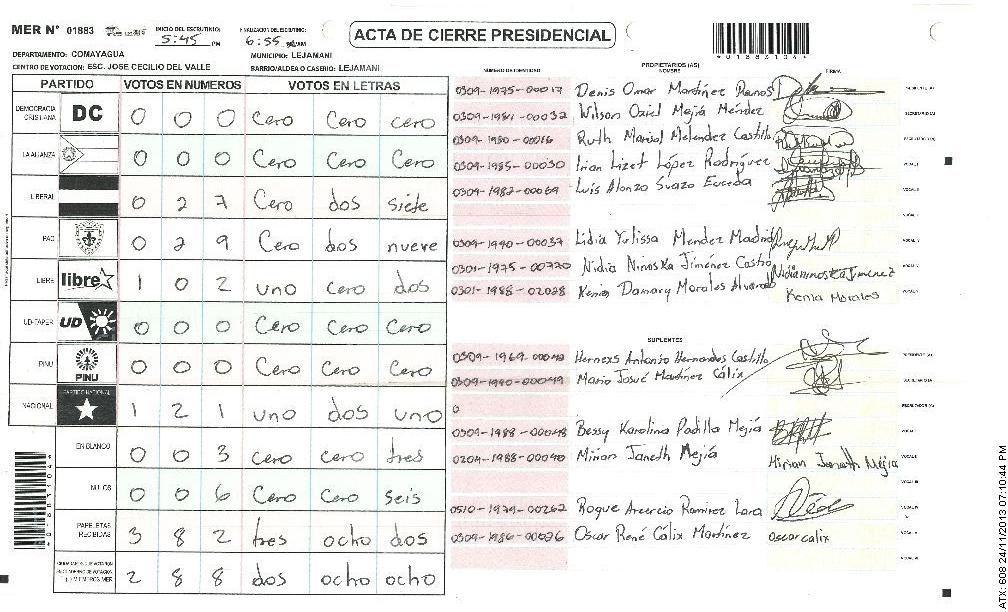 MER Nº 01883
INICIO DEL ESCRUTINIO: 5:45 PM
FINALIZACION DEL ESCRUTINIO: 6:55 AM
ACTA DE CIERRE PRESIDENCIAL
DEPARTAMENTO: COMAYAGUA
MUNICIPIO: LEJAMANI
CENTRO DE VOTACION: ESC. JOSE CECILIO DEL VALLE
BARRIO/ALDEA O CASERIO: LEJAMANI
PARTIDO VOTOS EN NUMEROS VOTOS EN LETRAS
DEMOCRACIA CRISTIANA DC 0 0 0 Cero Cero cero
LA ALIANZA 0 0 0 Cero Cero Cero
LIBERAL 0 2 7 Cero dos siete
PAC 0 2 9 Cero dos nueve
LIBRE libre 1 0 2 uno cero dos
UD-FAPER UD 0 0 0 Cero Cero Cero
PINU PINU 0 0 0 Cero Cero Cero
NACIONAL PARTIDO NACIONAL 1 2 1 uno dos uno
EN BLANCO 0 0 3 cero cero tres
NULOS 0 0 6 Cero Cero seis
PAPELETAS RECIBIDAS 3 8 2 tres ocho dos
MIEMBROS MER 2 8 8 dos ocho ocho
NUMERO DE IDENTIDAD PROPIETARIOS (AS) NOMBRE FIRMA
0309-1975-00017 Denis Omar Martinez Ramos PRESIDENTE (A)
0309-1981-00032 Wilson Oziel Mejia Méndez SECRETARIO (A)
0309-1980-00016 Ruth Marisol Melendez Castillo
0309-1985-00030 Lizet López Rodríguez VOCAL I
0309-1982-00069 Luis Alonzo Suazo VOCAL II
VOCAL III
0309-1990-00037 Lidia Yulissa Mendez Madrid VOCAL IV
0301-1975-00720 Nidia Ninoska Jiménez Castro Nidia ninoska Jimenez VOCAL V
0301-1988-02028 Kenia Damary Morales Alvarado Kenia Morales
SUPLENTES
0309-1969-00040 Antonio Hernandez Castillo PRESIDENTE (A)
0309-1990-00049 Mario Josué Martinez Cálix SECRETARIO (A)
0 ESCRUTADOR (A)
0309-1988-00048 Bessy Karolina Padilla Mejia VOCAL I
0204-1988-00040 Mirian Janeth Mejia Mirian Janeth Mejia VOCAL II
VOCAL III
0510-1979-00262 Roque Ramirez Lara VOCAL IV
0309-1986-00026 Oscar René Cálix Martinez oscar calix VOCAL V
ATX: 608 24/11/2013 07:10:44 PM